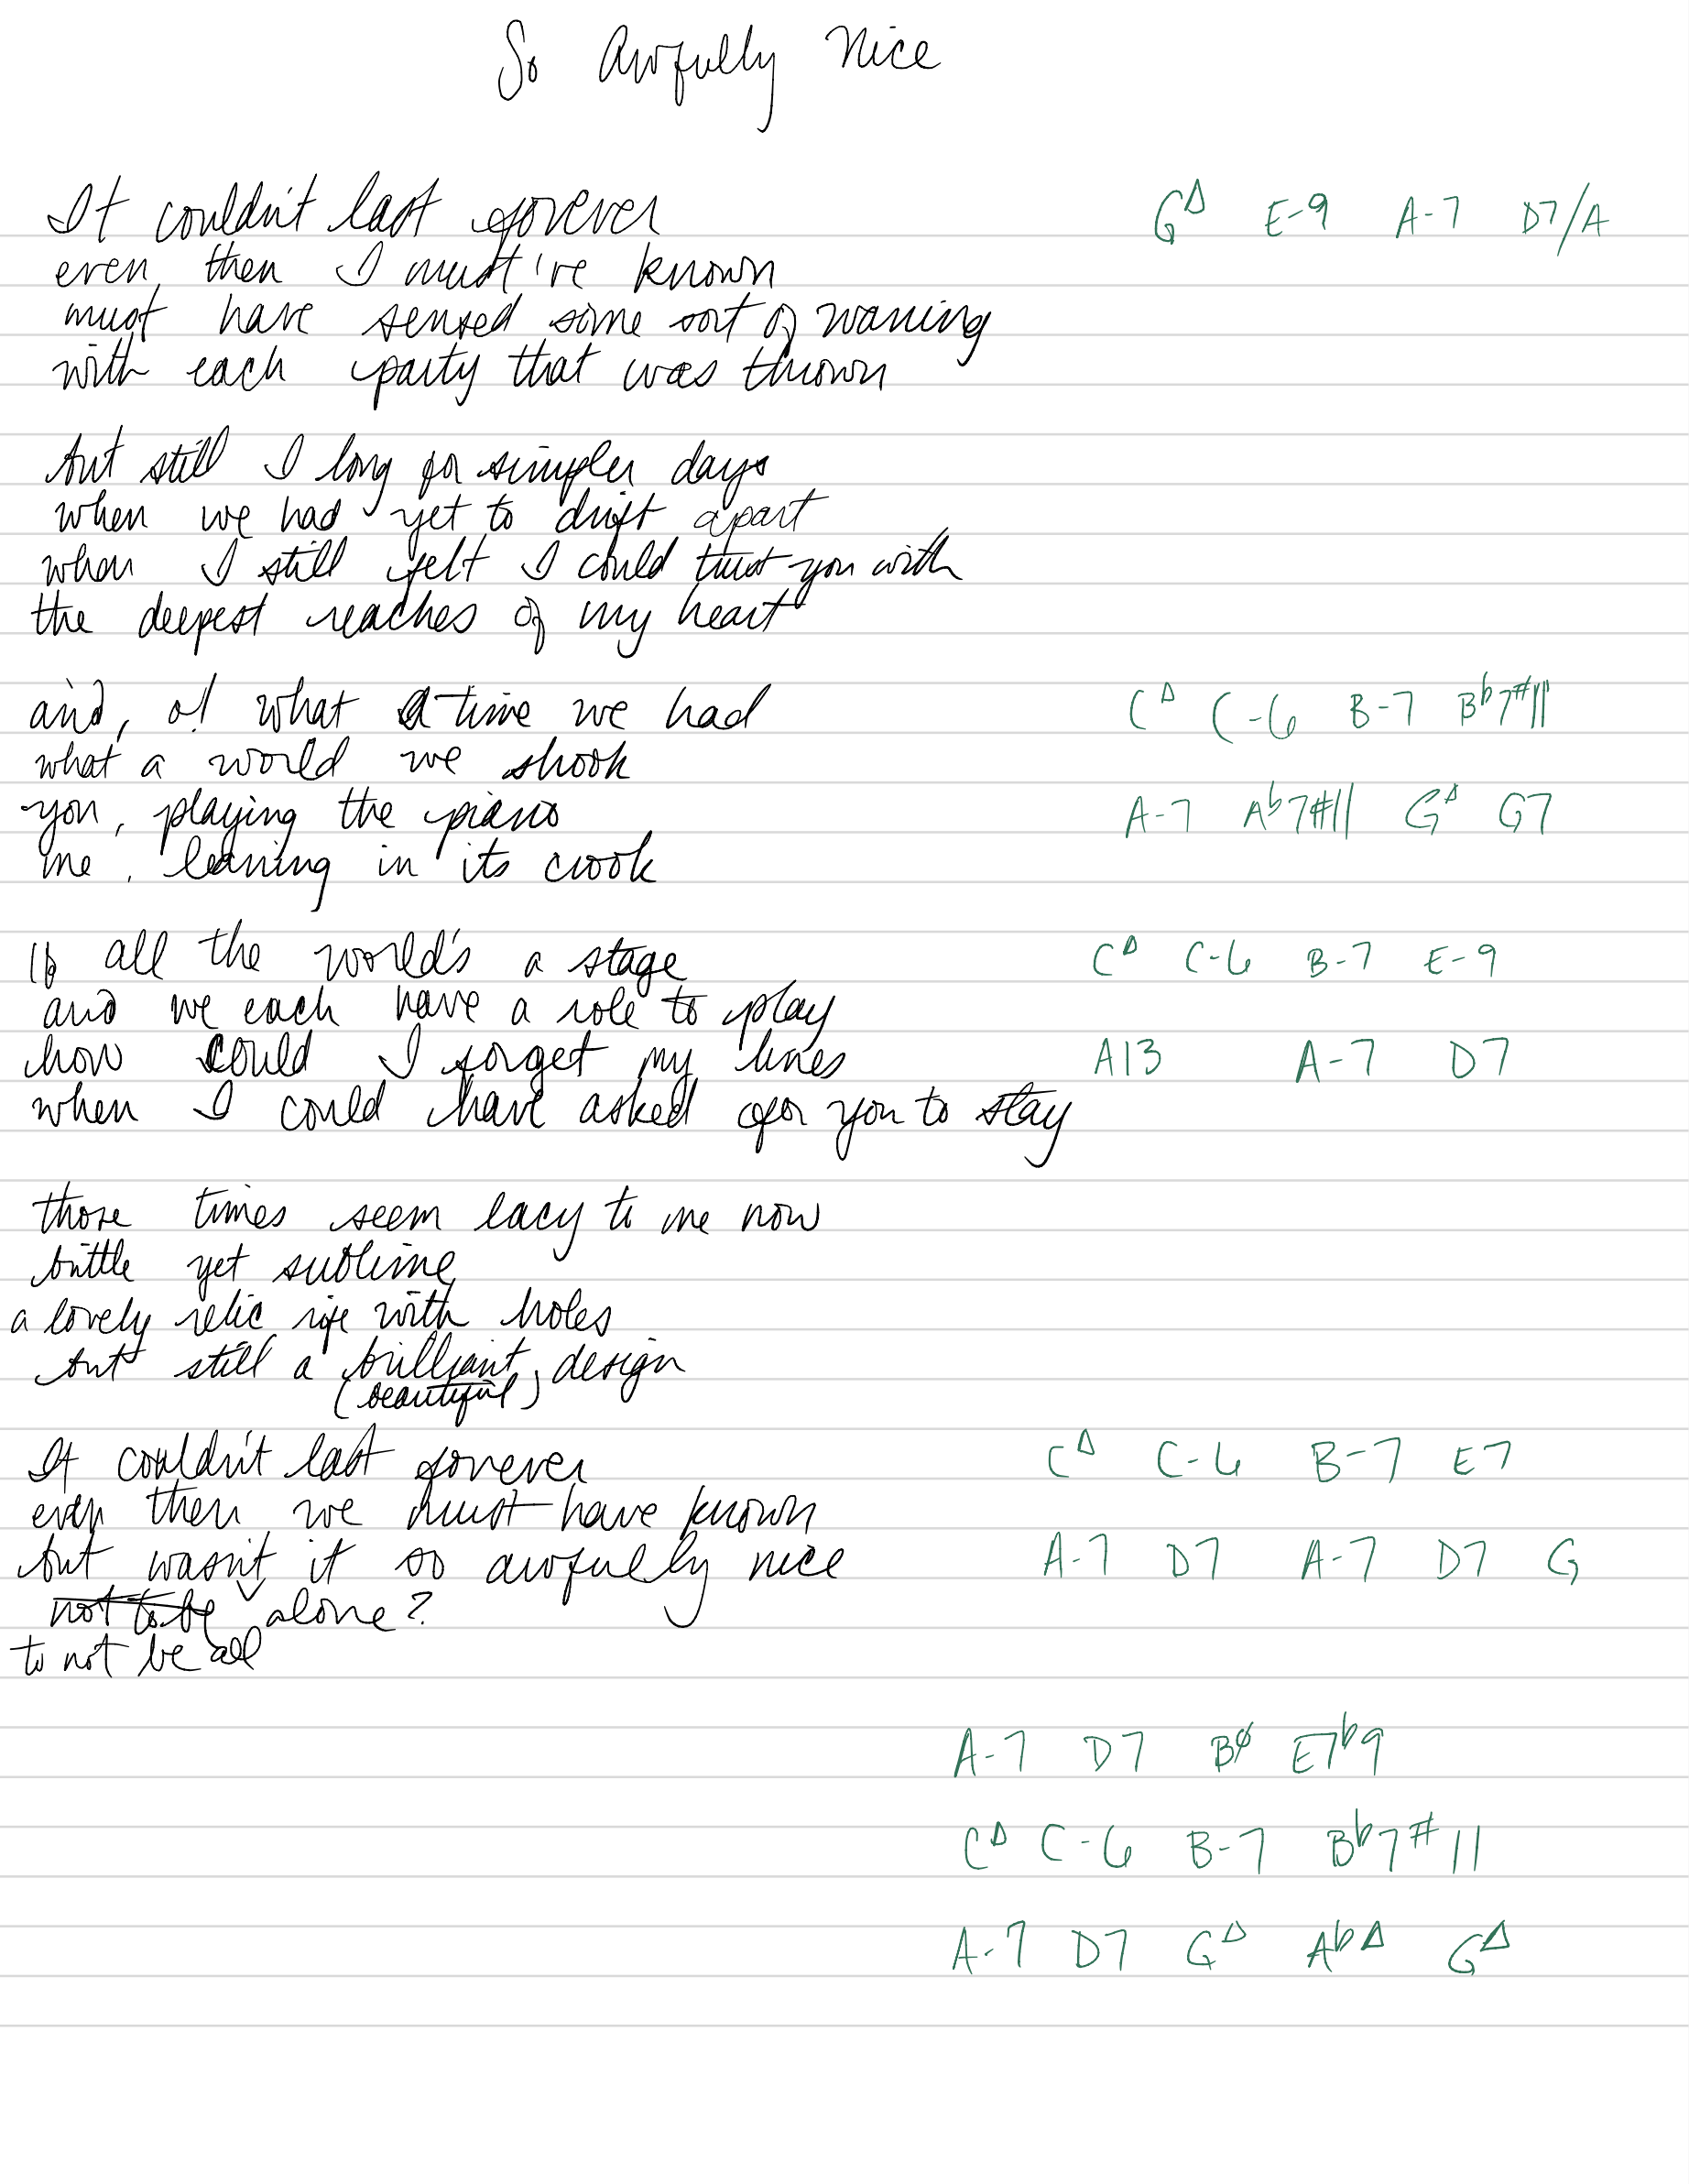 So Awfully Nice
It couldn't last forever GΔ E-9 A-7 D7/A
even then I must've known
must have sensed some sort of waning
with each party that was thrown
but still I long for simpler days
when we had yet to drift apart
when I still felt I could trust you with
the deepest reaches of my heart
and, o! what a time we had CΔ C-6 B-7 Bb7#11
what a world we shook
you, playing the piano A-7 Ab7#11 GΔ G7
me, leaning in its crook
If all the world's a stage CΔ C-6 B-7 E-9
and we each have a role to play
how could I forget my lines A13 A-7 D7
when I could have asked for you to stay
those times seem lacy to me now
brittle yet sublime
a lovely relic rife with holes
but still a brilliant design
(beautiful)
It couldn't last forever CΔ C-6 B-7 E7
even then we must have known
but wasn't it so awfully nice A-7 D7 A-7 D7 G
not to be alone?
to not be all
A-7 D7 Bø E7b9
CΔ C-6 B-7 Bb7#11
A-7 D7 GΔ AbΔ GΔ